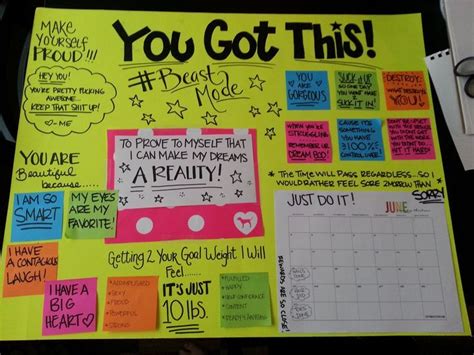 MAKE
YOURSELF
PROUD!!!
YOU GOT THIS!
#BEAST
MODE
HEY YOU!
YOU'RE PRETTY FUCKING
AWESOME...
KEEP THAT SHIT UP!
-ME
YOU
ARE
GORGEOUS
SUCK IT UP
SO ONE DAY
YOU WON'T HAVE
2 SUCK IT IN!
DESTROY
WHAT DESTROYS
YOU!
WHEN YOU'RE
STRUGGLIN
REMEMBER UR
DREAM BOD!
CAUSE ITS
SOMETHING
YOU HAVE
100%
CONTROL OVER!
HIT IT HARD!
TO PROVE TO MYSELF THAT
I CAN MAKE MY DREAMS
A REALITY!
YOU ARE
Beautiful
because......
I AM SO
SMART
MY EYES
ARE MY
FAVORITE!
I HAVE
A CONTAGIOUS
LAUGH!
I HAVE A
BIG
HEART
THE TIME WILL PASS REGARDLESS...SO I
WOULD RATHER FEEL SORE 2MORROW THAN
SORRY
JUST DO IT!
JUNE
Getting 2 Your Goal Weight I Will
Feel......
ACCOMPLISHED
SEXY
PROUD
POWERFUL
STRONG
IT'S JUST
10 lbs.
FULFILLED
HAPPY
SELF CONFIDENCE
CONTENT
REWARDS ARE SO CLOSE!